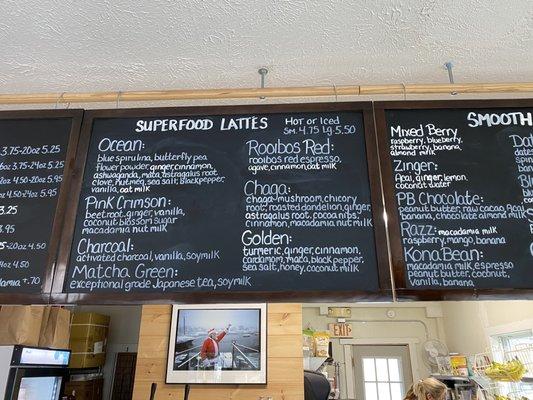 3.75-20oz 5.25
3.75-24oz 5.25
4.50-20oz 5.95
4.50-24oz 5.95
3.25
3.95
4.50-20oz 4.50
4.50
+.70
SUPERFOOD LATTES
HOT or ICED
SM. 4.75 LG 5.50
Ocean:
blue spirulina, butterfly pea
flower powder, ginger, cinnamon,
ashwaganda, maca, astragalus root
clove, nutmeg, sea salt, Blackpepper,
vanilla, oat milk
Pink Crimson:
Beet root, ginger, vanilla,
coconut blossom sugar
macadamia nut milk
Charcoal:
activated charcoal, vanilla, soymilk
Matcha Green:
exceptional grade Japanese tea, soymilk
Rooibos Red:
rooibos red espresso,
agave, cinnamon, oat milk
Chaga:
chaga-mushroom, chicory
root, roasted dandelion, ginger
astragalus root, cocoa nibs,
cinnamon, macadamia nut milk
Golden:
turmeric, ginger, cinnamon,
cardamom, maca, black pepper,
sea salt, honey, coconut milk
SMOOTH
Mixed Berry
raspberry, blueberry,
strawberry, banana,
almond milk
Zinger:
acai, ginger, lemon,
coconut water
PB Chocolate:
peanut butter, raw cacao,
banana, chocolate almond milk
Razz: macadamia milk,
raspberry, mango, banana
Kona Bean:
macadamia milk, espresso
peanut butter, coconut
EXIT